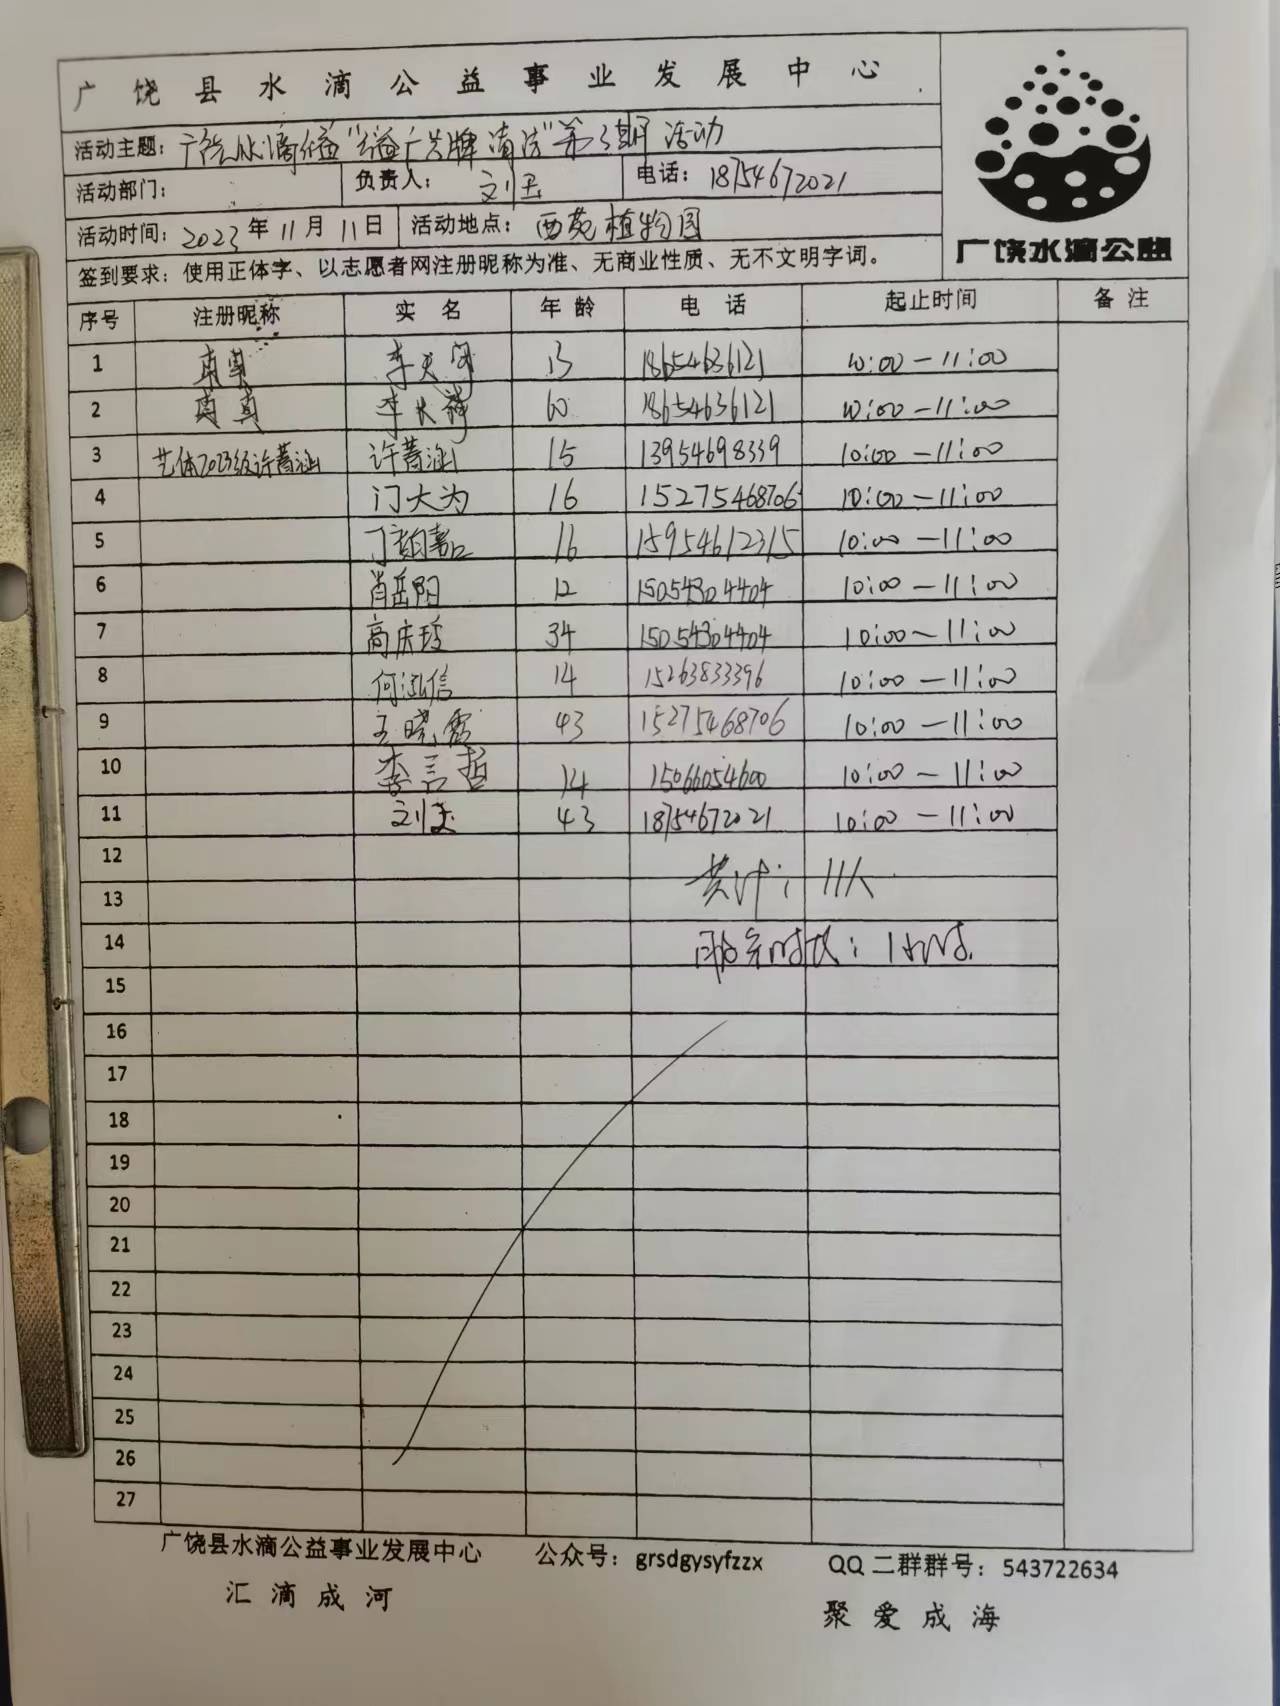 广饶县水滴公益事业发展中心
活动主题：广饶水滴公益"益广告牌清洁"第3期活动
活动部门： 负责人：刘玉 电话：18754672021
活动时间：2023年11月11日 活动地点：西苑植物园
签到要求：使用正体字、以志愿者网注册昵称为准、无商业性质、无不文明字词。
广饶水滴公益
序号 注册昵称 实名 年龄 电话 起止时间 备注
1 13 18654636121 10:00—11:00
2 李长海 60 18654636121 10:00—11:00
3 艺体2023级许菁涵 许菁涵 15 13954698339 10:00—11:00
4 门大为 16 15275468706 10:00—11:00
5 16 15954612315 10:00—11:00
6 肖岳阳 12 15054304404 10:00—11:00
7 高庆玲 34 15054304404 10:00—11:00
8 何泓信 14 15263833396 10:00—11:00
9 王晓霞 43 15275468706 10:00—11:00
10 李言哲 14 15066054600 10:00—11:00
11 刘玉 43 18754672021 10:00—11:00
12
共计：11人
13
14 服务时长：1小时.
15
16
17
18
19
20
21
22
23
24
25
26
27
广饶县水滴公益事业发展中心 公众号：grsdgysyfzzx QQ二群群号：543722634
汇滴成河 聚爱成海